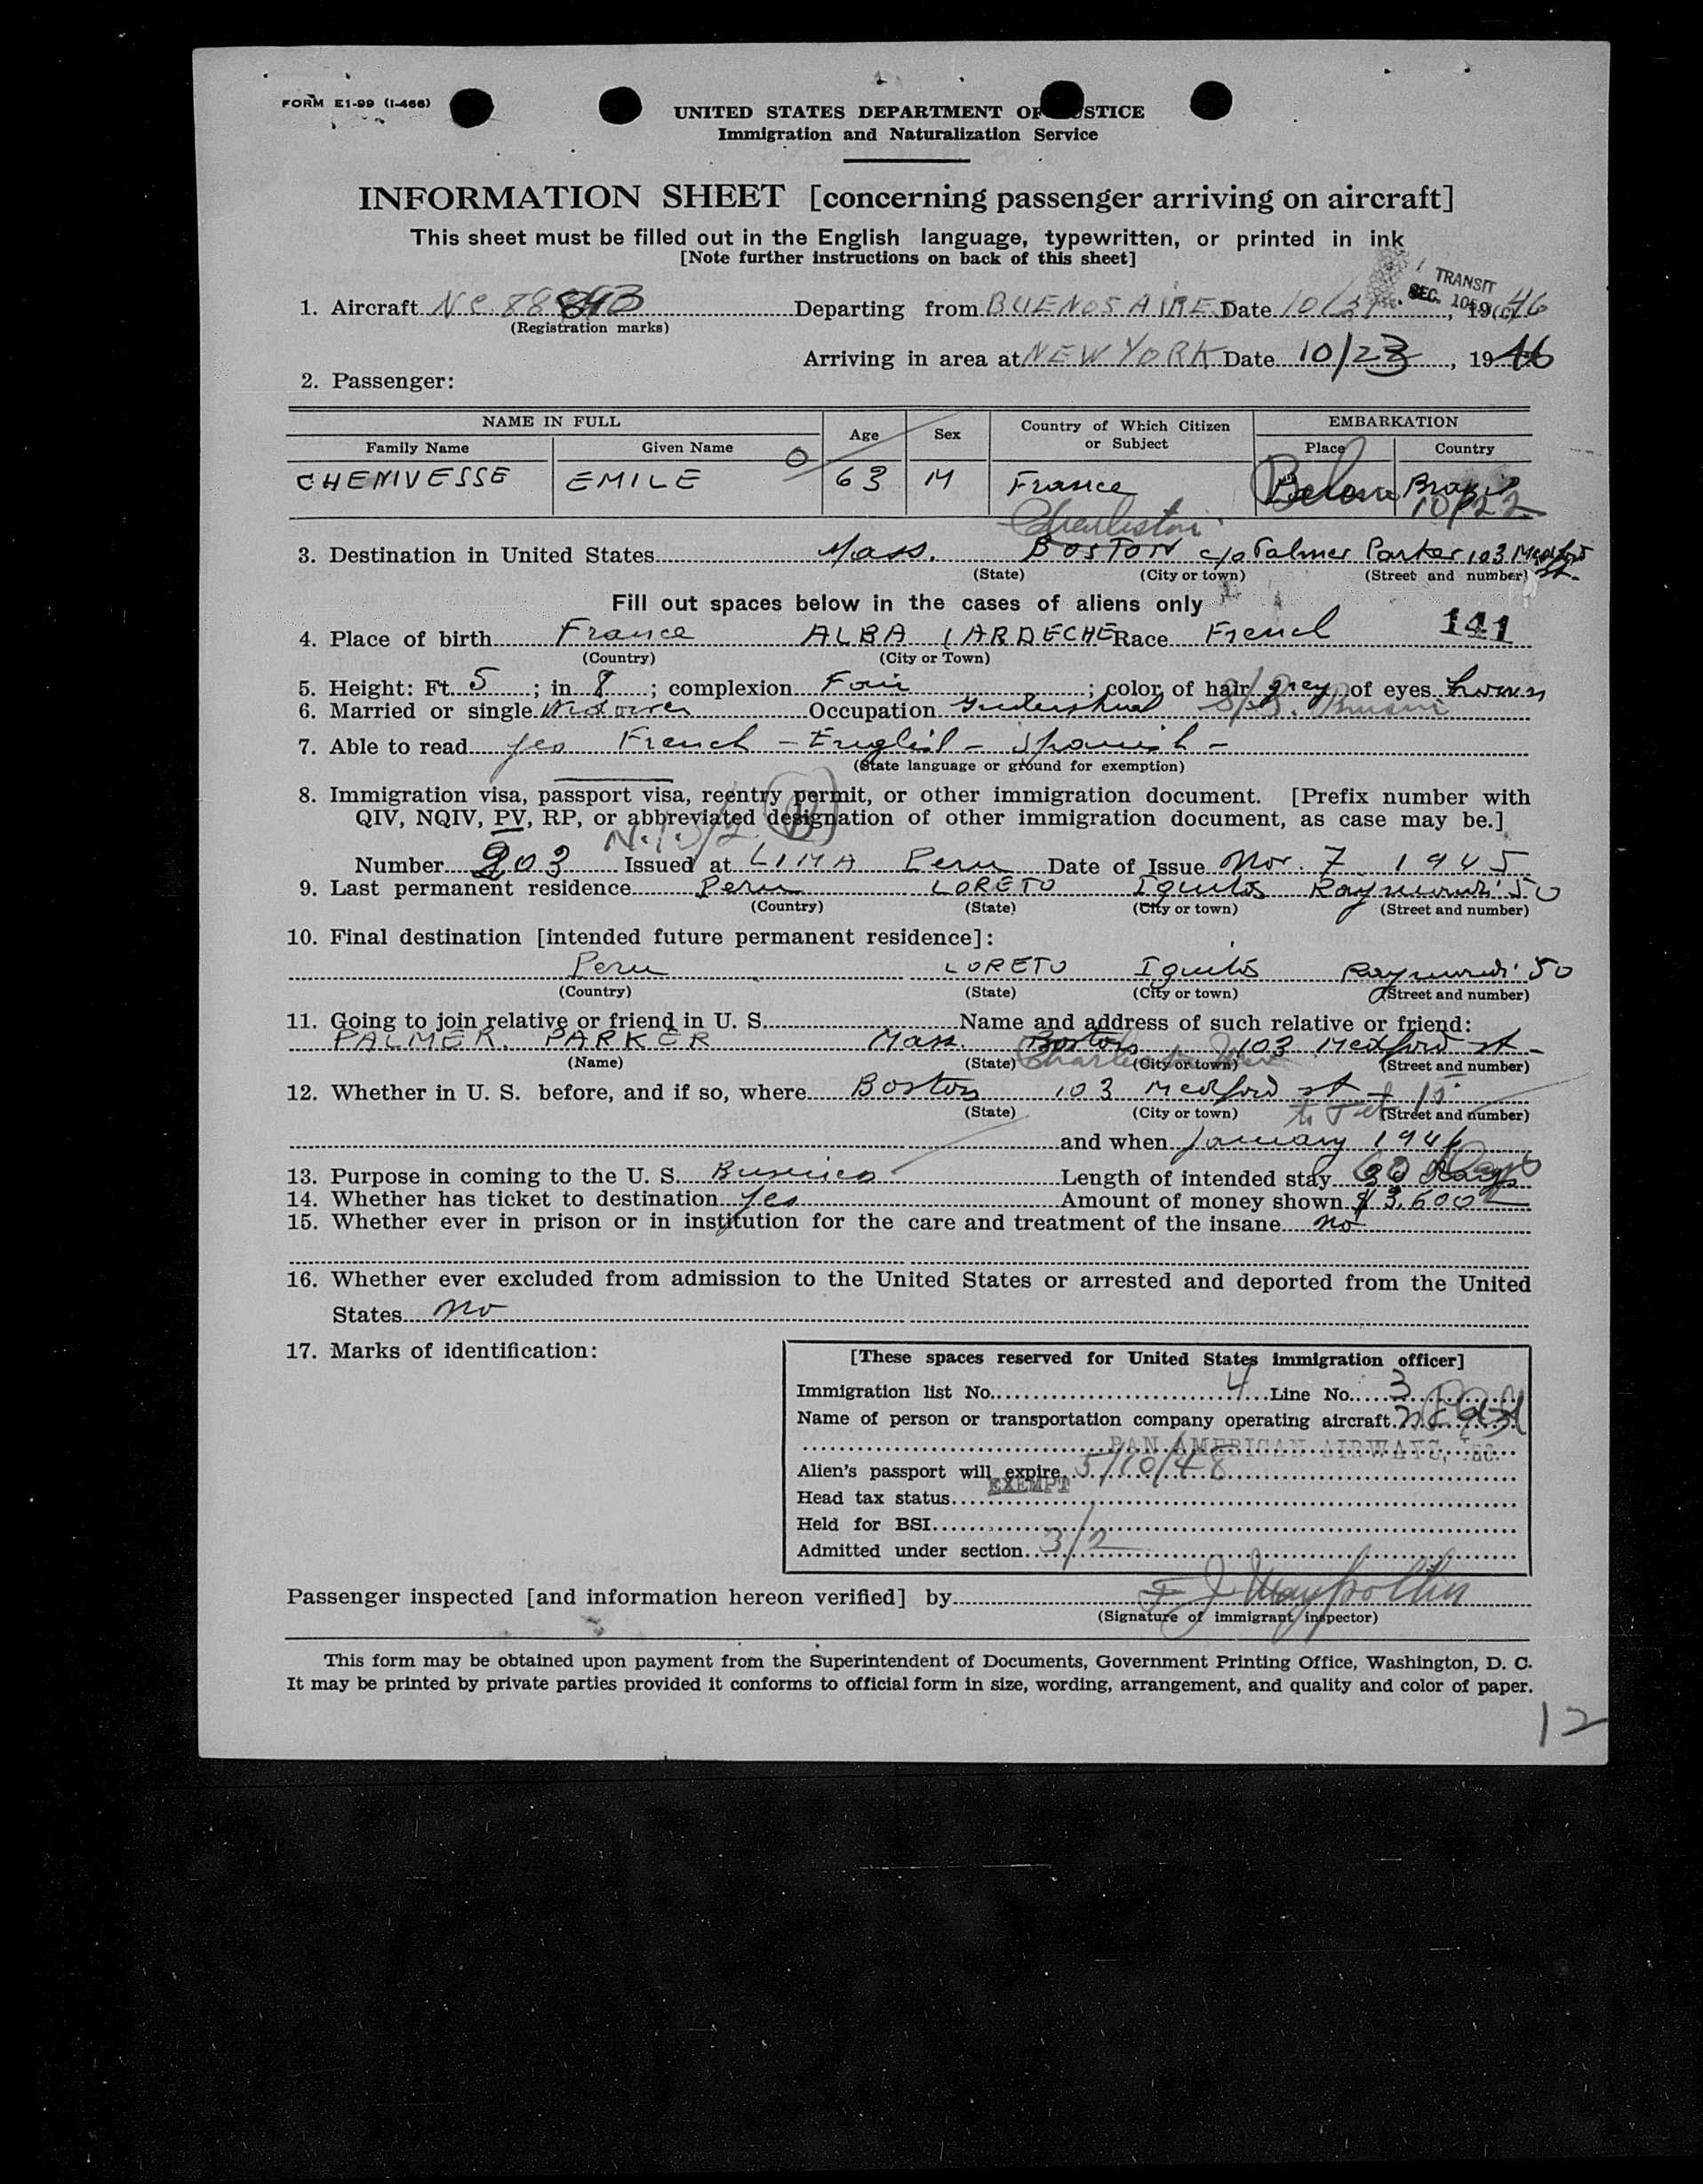 FORM E1-99 (I-466)
UNITED STATES DEPARTMENT OF JUSTICE
Immigration and Naturalization Service
INFORMATION SHEET [concerning passenger arriving on aircraft]
This sheet must be filled out in the English language, typewritten, or printed in ink
[Note further instructions on back of this sheet]
TRANSIT
1. Aircraft NC 88 Departing from BUENOS AIRES Date 10/21, 1946
(Registration marks)
Arriving in area at NEW YORK Date 10/23, 1946
2. Passenger:
NAME IN FULL Age Sex Country of Which Citizen or Subject EMBARKATION
Family Name Given Name Place Country
CHENIVESSE EMILE 63 M France Belem Brazil
10/22
3. Destination in United States Mass. BOSTON c/o Palmer Parker 103 Medford St.
(State) (City or town) (Street and number)
Fill out spaces below in the cases of aliens only
4. Place of birth France ALBA (ARDECHE Race French 141
(Country) (City or Town)
5. Height: Ft. 5; in 8; complexion Fair; color of hair grey of eyes brown
6. Married or single Widower Occupation
7. Able to read yes French - English - Spanish -
(State language or ground for exemption)
8. Immigration visa, passport visa, reentry permit, or other immigration document. [Prefix number with
QIV, NQIV, PV, RP, or abbreviated designation of other immigration document, as case may be.]
Number 203 Issued at LIMA Peru Date of Issue Nov. 7 1945
9. Last permanent residence Peru LORETO Iquitos Raymondi 50
(Country) (State) (City or town) (Street and number)
10. Final destination [intended future permanent residence]:
Peru LORETO Iquitos Raymondi 50
(Country) (State) (City or town) (Street and number)
11. Going to join relative or friend in U. S. Name and address of such relative or friend:
PALMER. PARKER Mass. Boston 103 Medford st -
(Name) (State) (City or town) (Street and number)
12. Whether in U. S. before, and if so, where Boston 103 Medford st
(State) (City or town) (Street and number)
and when January 1946
13. Purpose in coming to the U. S. Business Length of intended stay 60 Days
14. Whether has ticket to destination yes Amount of money shown $ 3,600
15. Whether ever in prison or in institution for the care and treatment of the insane no
16. Whether ever excluded from admission to the United States or arrested and deported from the United
States no
17. Marks of identification:
[These spaces reserved for United States immigration officer]
Immigration list No. 4 Line No. 3
Name of person or transportation company operating aircraft
PAN AMERICAN AIRWAYS, INC.
Alien's passport will expire 5/10/48
Head tax status EXEMPT
Held for BSI
Admitted under section 3/2
Passenger inspected [and information hereon verified] by
(Signature of immigrant inspector)
This form may be obtained upon payment from the Superintendent of Documents, Government Printing Office, Washington, D. C.
It may be printed by private parties provided it conforms to official form in size, wording, arrangement, and quality and color of paper.
12